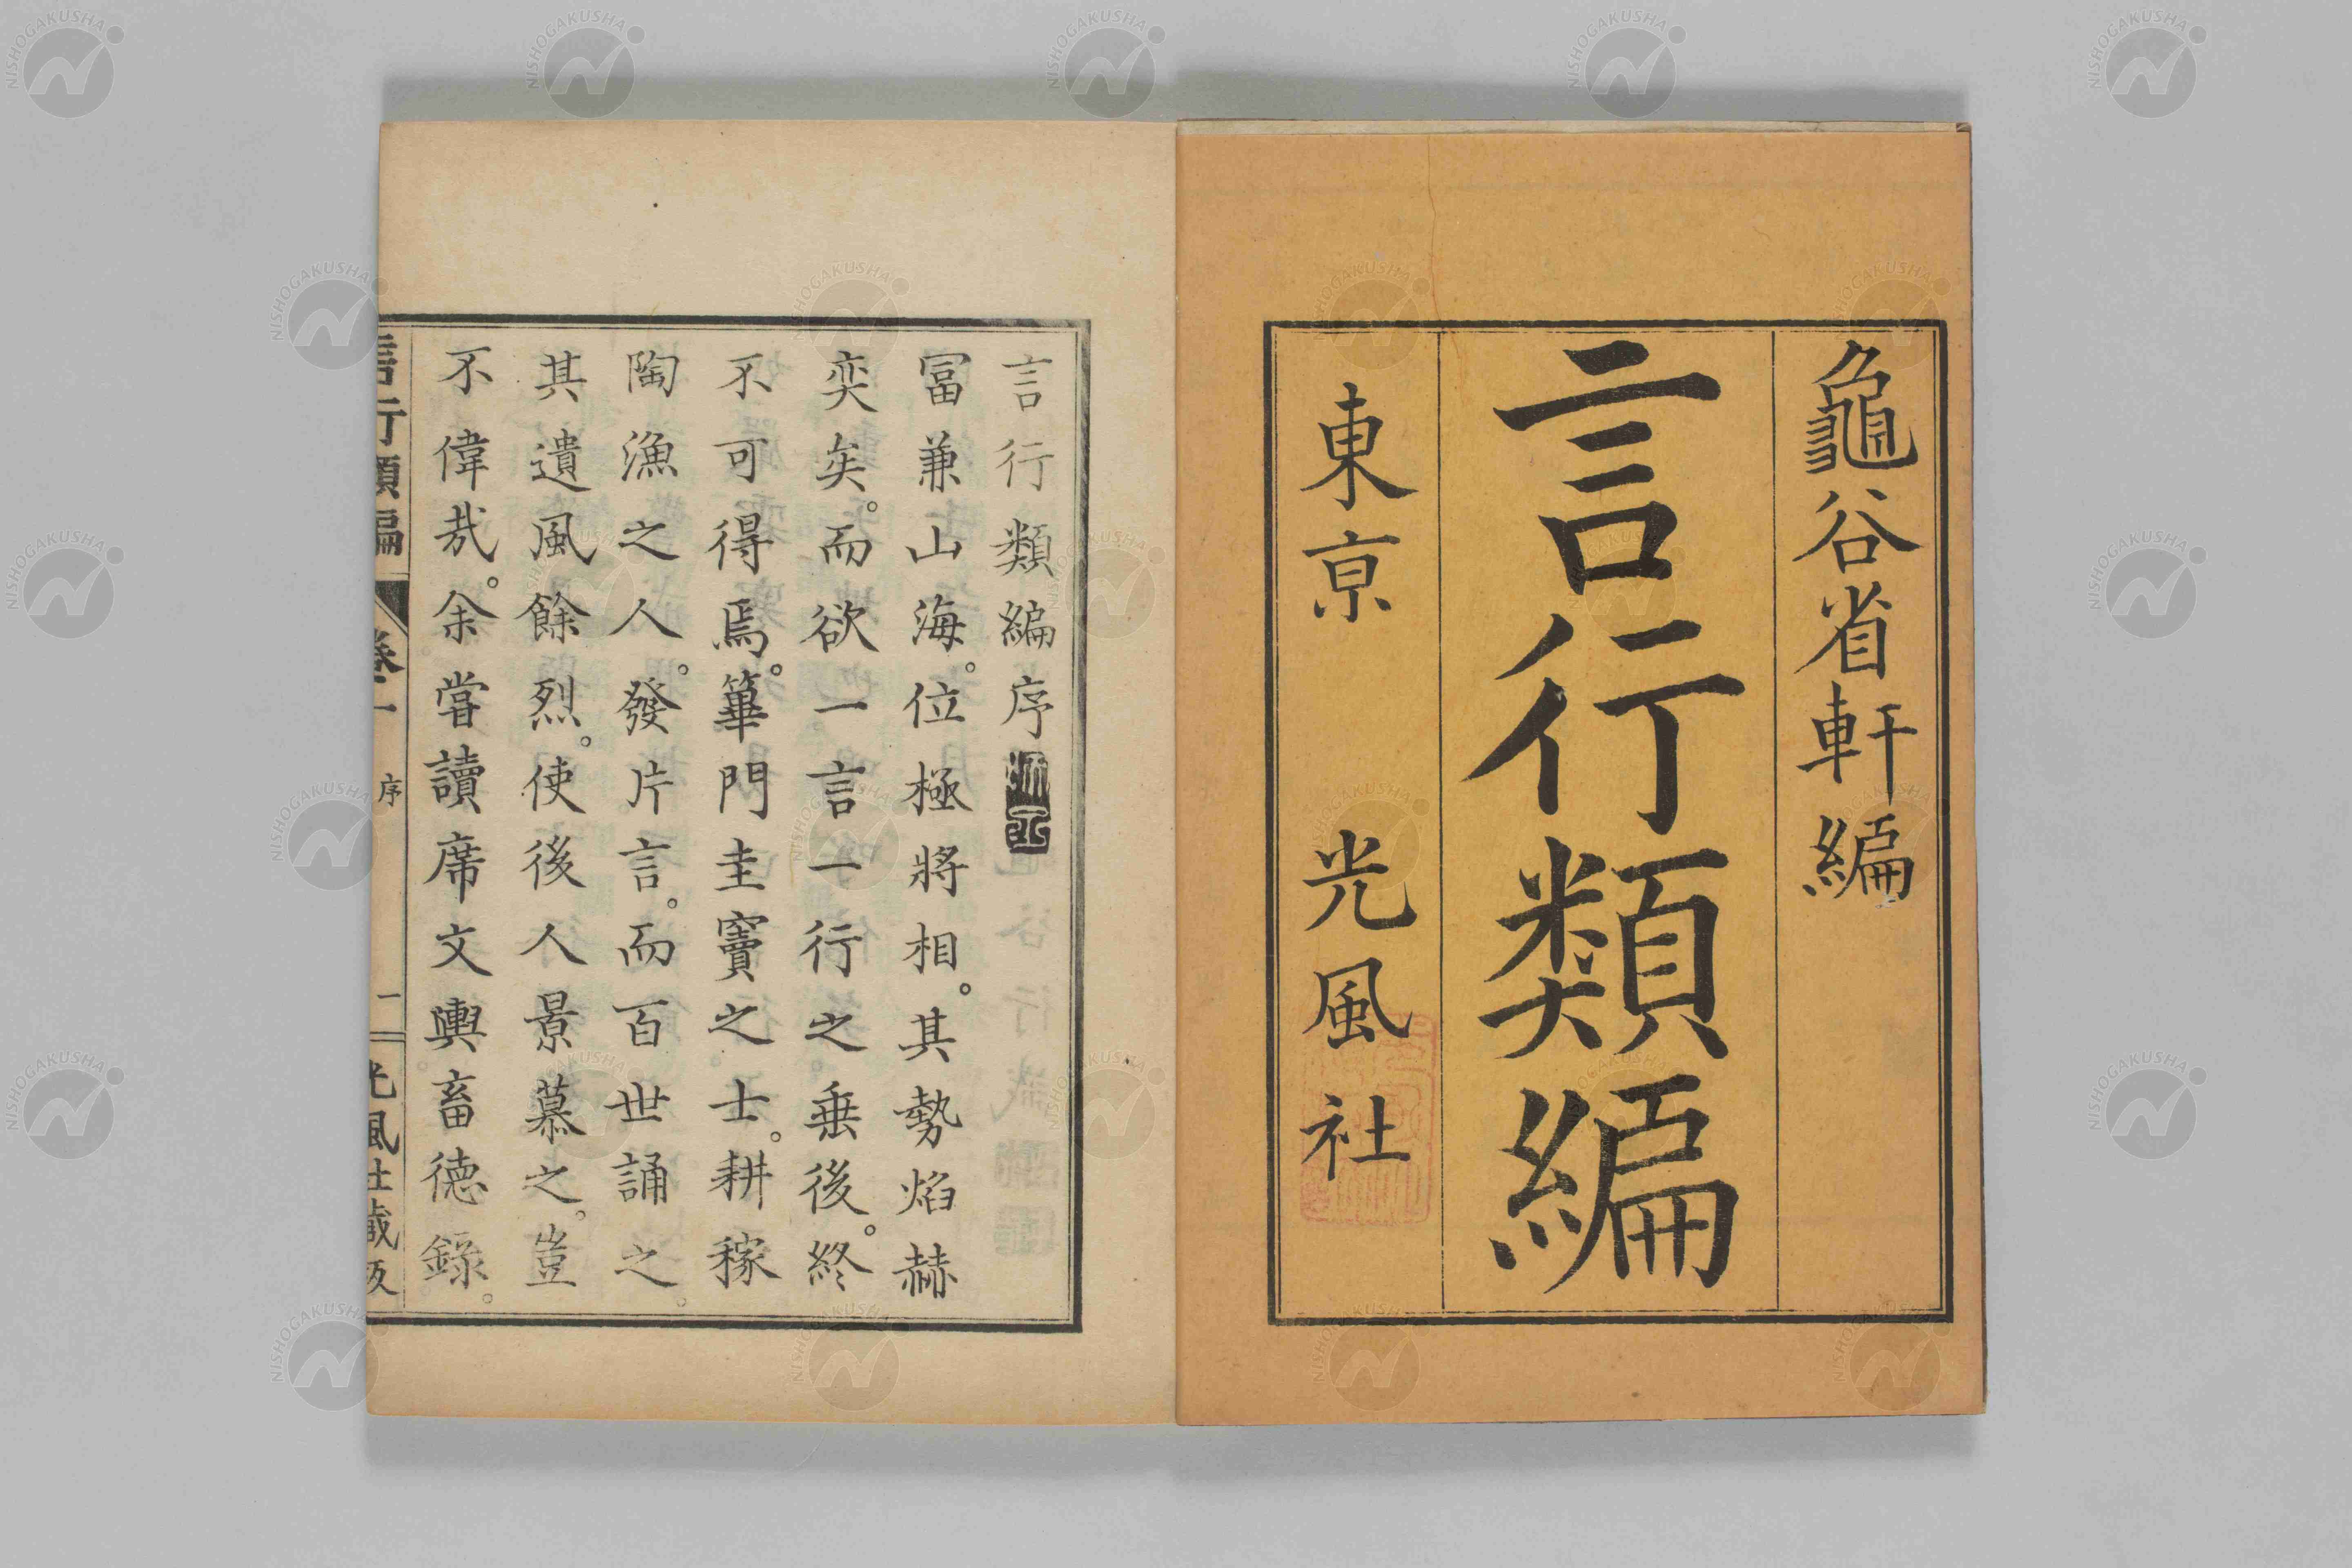 龜谷省軒編
言行類編
東京 光風社
言行類編序
冨兼山海。位極將相。其勢焰赫
奕矣。而欲一言一行之垂後。終
不可得焉。篳門圭竇之士。耕稼
陶漁之人。發片言。而百世誦之。
其遺風餘烈。使後人景慕之。豈
不偉哉。余嘗讀席文輿畜德錄。
言行類編 卷一 序 一 光風社藏版
NISHOGAKUSHA